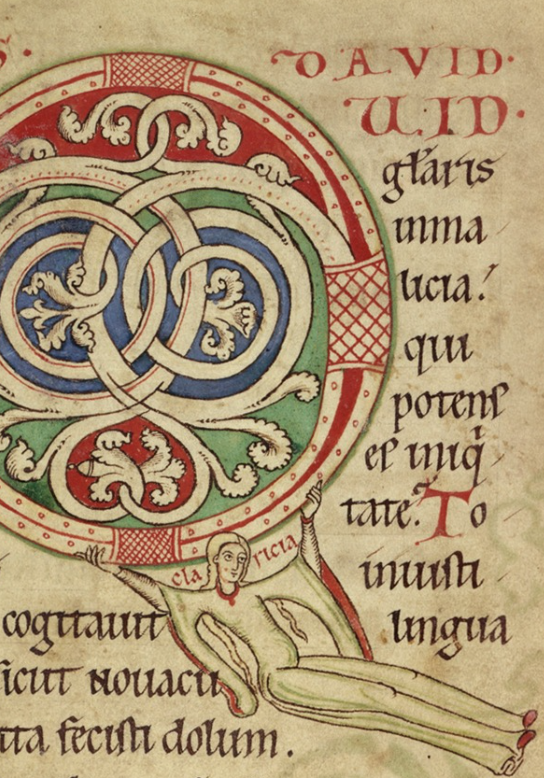 S. DAVID.
UID.
gl̃aris
inma
licia!
qui
potens
es iniq̇
tate. To
claricia
inuisti
cogitauit lingua
sicut nouacu
ita fecisti dolum.